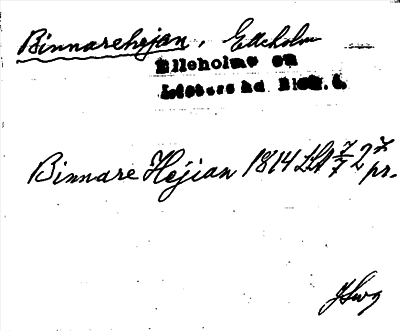 Binnarehejan, Elleholm
Elleholms sn
Listers hd Blek. l.
Binnare Hejian 1814 LSA 7/7 2 pr.